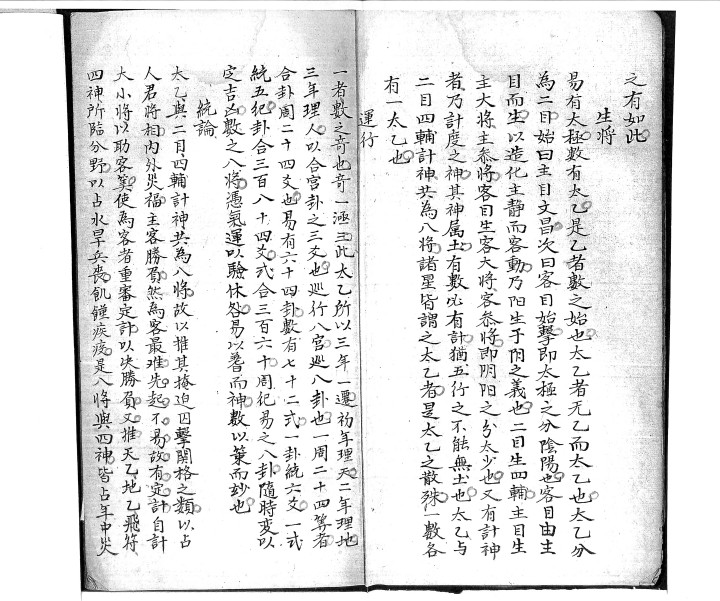 之有如此
生将
易有太極数有太乙是乙者數之始也太乙者无乙而太乙也太乙分
為二目始曰主目文昌次曰客目始擊即太極之分陰陽也客目由主
目而生以造化主静而客動乃阳生于阴之義也二目生四輔主目生
主大将主参将客目生客大将客参将即阴阳之分太少也又有計神
者乃計度之神其神属土有數必有計猶五行之不能無土也太乙与
二目四輔計神共為八将諸星皆謂之太乙者是太乙之散殊一數各
有一太乙也
運行
一者數之竒也竒一涵三此太乙所以三年一遷初年理天二年理地
三年理人以合宫卦之三爻也巡行八宫巡八卦也一周二十四筭者
合卦周二十四爻也易有六十四卦數有七十二式一卦統六爻一式
統五纪卦合三百八十四爻式合三百六十周纪易之八卦随時变以
定吉凶數之八将憑氣運以驗休咎易以蓍而神数以策而妙也
統論
太乙與二目四輔計神共為八将故以推其掩迫囚擊関格之類以占
人君将相内外災福主客勝負然為客最难先起不易故有定計自計
大小将以助客筭使為客者重審定計以决勝負又推天乙地乙飛符
四神所臨分野以占水旱兵丧飢饉疾疫是八将與四神皆占年中災